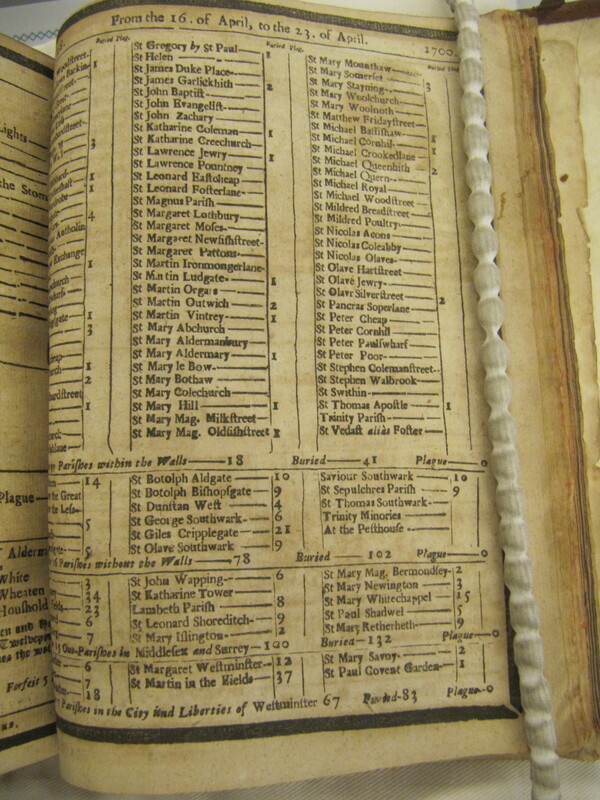 From the 16. of April, to the 23. of April. 1700.
Buried Plag.
St Gregory by St Paul
St Helen 1
St James Duke Place
St James Garlickhith 2
St John Baptist
St John Evangelist
St John Zachary
St Katharine Coleman 1
St Katharine Creechurch
St Lawrence Jewry 1
St Lawrence Pountney
St Leonard Eastcheap
St Leonard Fosterlane
St Magnus Parish
St Margaret Lothbury
St Margaret Moses
St Margaret Newfishstreet
St Margaret Pattons
St Martin Ironmongerlane
St Martin Ludgate 1
St Martin Orgars
St Martin Outwich 2
St Martin Vintrey 1
St Mary Abchurch
St Mary Aldermanbury
St Mary Aldermary 1
St Mary le Bow
St Mary Bothaw
St Mary Colechurch
St Mary Hill 1
St Mary Mag. Milkstreet
St Mary Mag. Oldfishstreet 1
Buried Plag.
St Mary Mounthaw
St Mary Somerset 3
St Mary Stayning
St Mary Woolchurch
St Mary Woolnoth
St Matthew Fridaystreet
St Michael Bassishaw 1
St Michael Cornhil 1
St Michael Crookedlane
St Michael Queenhith 2
St Michael Quern
St Michael Royal
St Michael Woodstreet
St Mildred Breadstreet
St Mildred Poultry
St Nicolas Acons
St Nicolas Coleabby
St Nicolas Olaves
St Olave Hartstreet
St Olave Jewry
St Olave Silverstreet 2
St Pancras Soperlane
St Peter Cheap
St Peter Cornhil
St Peter Paulswharf
St Peter Poor
St Stephen Colemanstreet
St Stephen Walbrook
St Swithin
St Thomas Apostle 1
Trinity Parish
St Vedast alias Foster
Parishes within the Walls 18 Buried 41 Plague 0
St Botolph Aldgate 10
St Botolph Bishopsgate 9
St Dunstan West 4
St George Southwark 6
St Giles Cripplegate 21
St Olave Southwark 9
Saviour Southwark 10
St Sepulchres Parish 9
St Thomas Southwark
Trinity Minories
At the Pesthouse
Parishes without the Walls 78 Buried 102 Plague 0
St John Wapping 6
St Katharine Tower
Lambeth Parish 8
St Leonard Shoreditch 9
St Mary Islington 2
St Mary Mag. Bermondsey 2
St Mary Newington 3
St Mary Whitechappel 15
St Paul Shadwel 5
St Mary Retherheth 9
Out-Parishes in Middlesex and Surrey 120 Buried 132 Plague 0
St Margaret Westminster 12
St Martin in the Fields 37
St Mary Savoy 2
St Paul Covent Garden 1
Parishes in the City and Liberties of Westminster 67 Buried 83 Plague 0